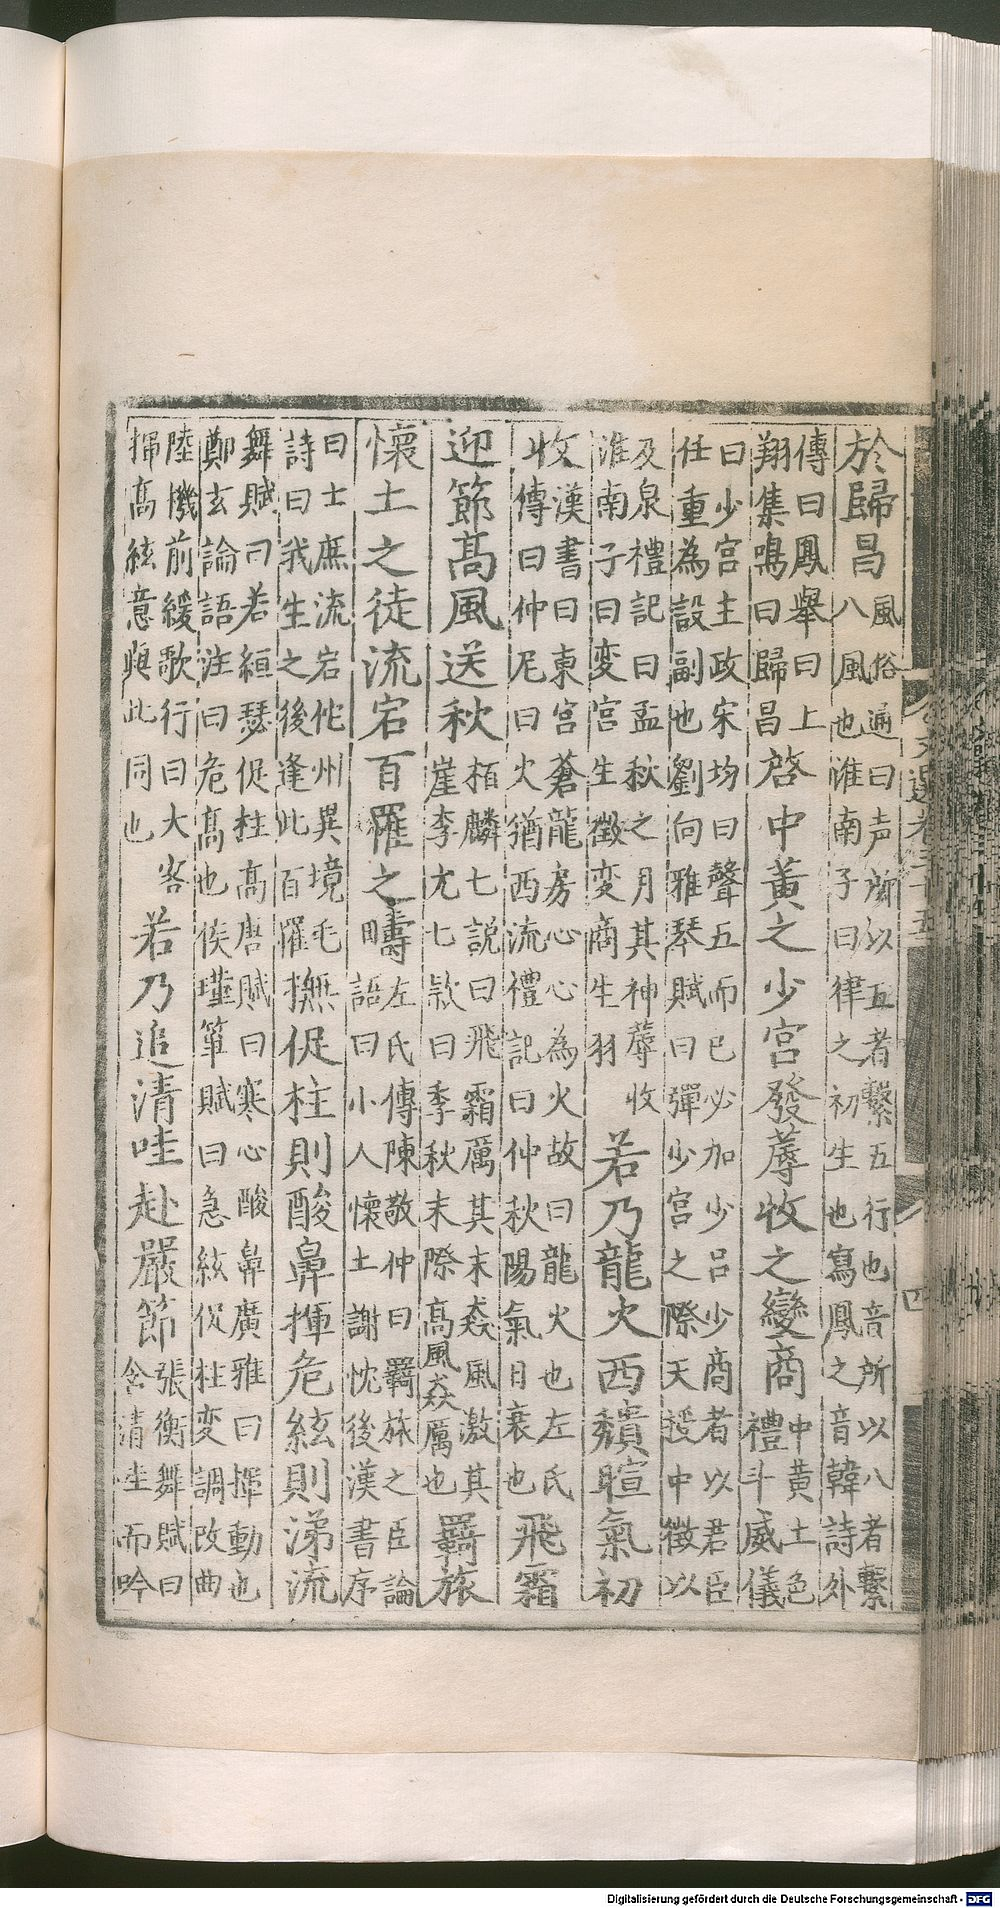 於歸昌風俗通曰声所以五者繫五行也音所以八者繫八風也淮南子曰律之初生也寫鳳之音韓詩外
傳曰鳳舉曰上翔集鳴曰歸昌啓中黃之少宮發蓐收之變商中黃土色禮斗威儀
曰少宮主政宋均曰聲五而已必加少吕少商者以君臣任重為設副也劉向雅琴賦曰彈少宮之際天授中徵以
及泉禮記曰孟秋之月其神蓐收淮南子曰変宮生徵変商生羽若乃龍火西頹暄氣初
收漢書曰東宮蒼龍房心心為火故曰龍火也左氏傳曰仲尼曰火猶西流禮記曰仲秋陽氣日衰也飛霜
迎節髙風送秋栢麟七說曰飛霜厲其末猋風激其崖李尤七欵曰季秋末際高風猋厲也羇旅
懷土之徒流宕百罹之疇左氏傳陳敬仲曰羇旅之臣論語曰小人懷土謝忱後漢書序
曰士庶流宕他州異境毛詩曰我生之後逢此百罹撫促柱則酸鼻揮危絃則涕流
舞賦曰若縆瑟促柱髙唐賦曰寒心酸鼻廣雅曰揮動也鄭玄論語注曰危髙也侯瑾箏賦曰急絃促柱変調改曲
陸機前緩歌行曰大客揮髙絃意與此同也若乃追清哇赴嚴節張衡舞賦曰含清哇而吟
文選卷三十五
四
Digitalisierung gefördert durch die Deutsche Forschungsgemeinschaft - DFG